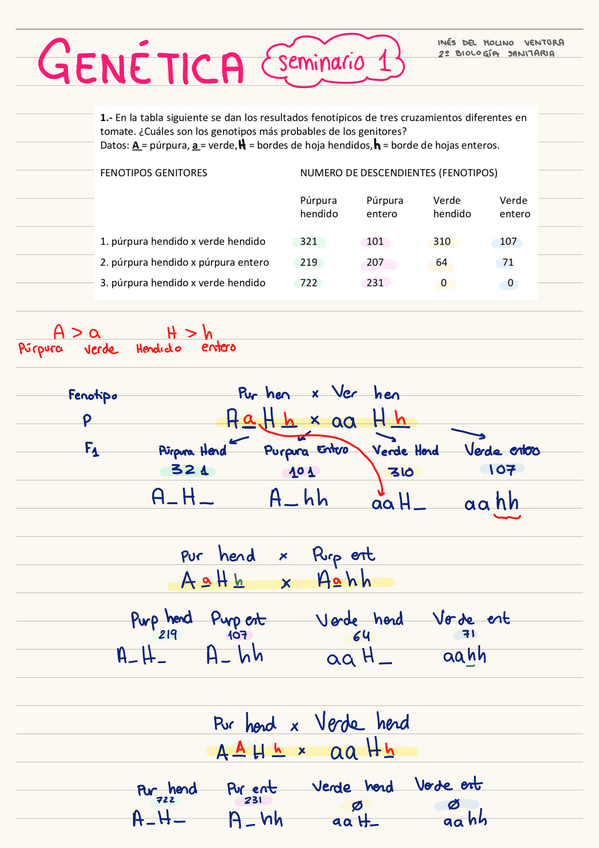 GENÉTICA seminario 1
INÉS DEL MOLINO VENTURA
2º BIOLOGÍA SANITARIA
1.- En la tabla siguiente se dan los resultados fenotípicos de tres cruzamientos diferentes en
tomate. ¿Cuáles son los genotipos más probables de los genitores?
Datos: A = púrpura, a = verde, H = bordes de hoja hendidos, h = borde de hojas enteros.
FENOTIPOS GENITORES NUMERO DE DESCENDIENTES (FENOTIPOS)
Púrpura Púrpura Verde Verde
hendido entero hendido entero
1. púrpura hendido x verde hendido 321 101 310 107
2. púrpura hendido x púrpura entero 219 207 64 71
3. púrpura hendido x verde hendido 722 231 0 0
A > a H > h
Púrpura verde Hendido entero
Fenotipo Pur hen x Ver hen
P A a H h x aa H h
F1 Púrpura Hend Purpura Entero Verde Hend Verde entero
321 101 310 107
A_H_ A_hh aaH_ aahh
Pur hend x Purp ent
A a H h x A a h h
Purp hend Purp ent Verde hend Verde ent
219 107 64 71
A_H_ A_hh aaH_ aahh
Pur hend x Verde hend
A A H h x aa H h
Pur hend Pur ent Verde hend Verde ent
722 231 Ø Ø
A_H_ A_hh aaH_ aahh